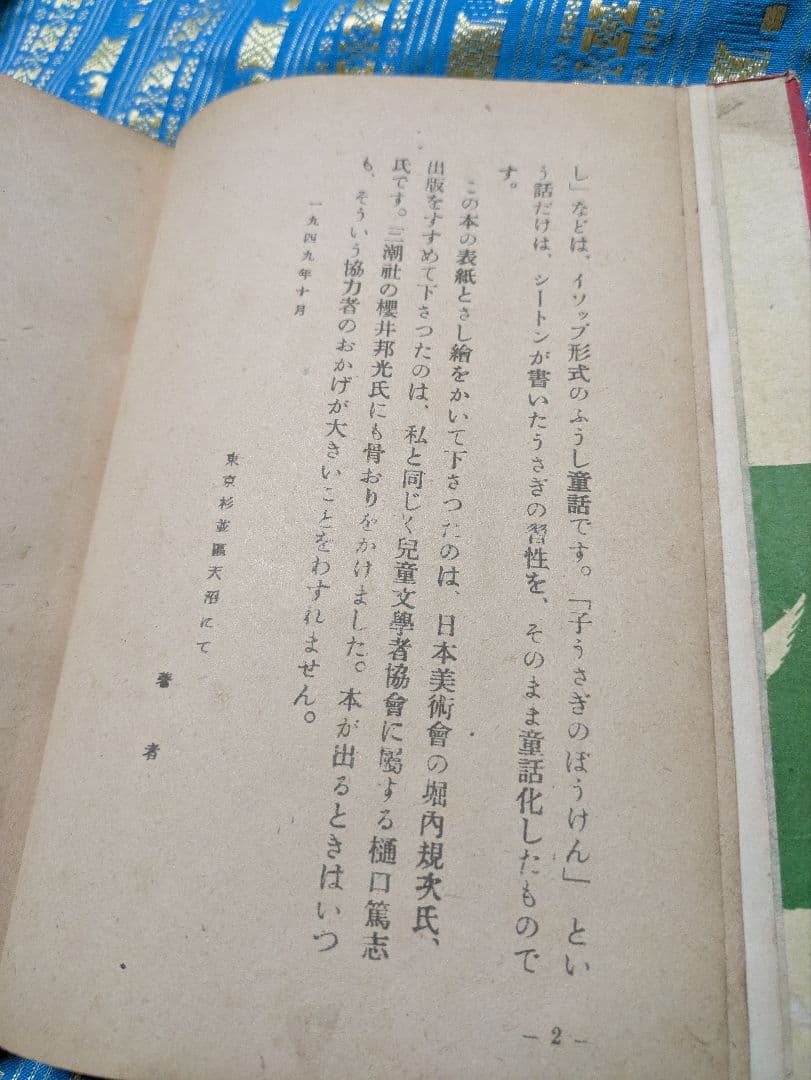 し」などは、イソップ形式のふうし童話です。「子うさぎのぼうけん」とい
う話だけは、シートンが書いたうさぎの習性を、そのまま童話化したもので
す。
この本の表紙とさし繪をかいて下さつたのは、日本美術會の堀內規次氏、
出版をすすめて下さつたのは、私と同じく兒童文學者協會に屬する樋口篤志
氏です。三潮社の櫻井邦光氏にも骨おりをかけました。本が出るときはいつ
も、そういう協力者のおかげが大きいことをわすれません。
一九四九年十月
東京杉並區天沼にて
著者
— 2 —